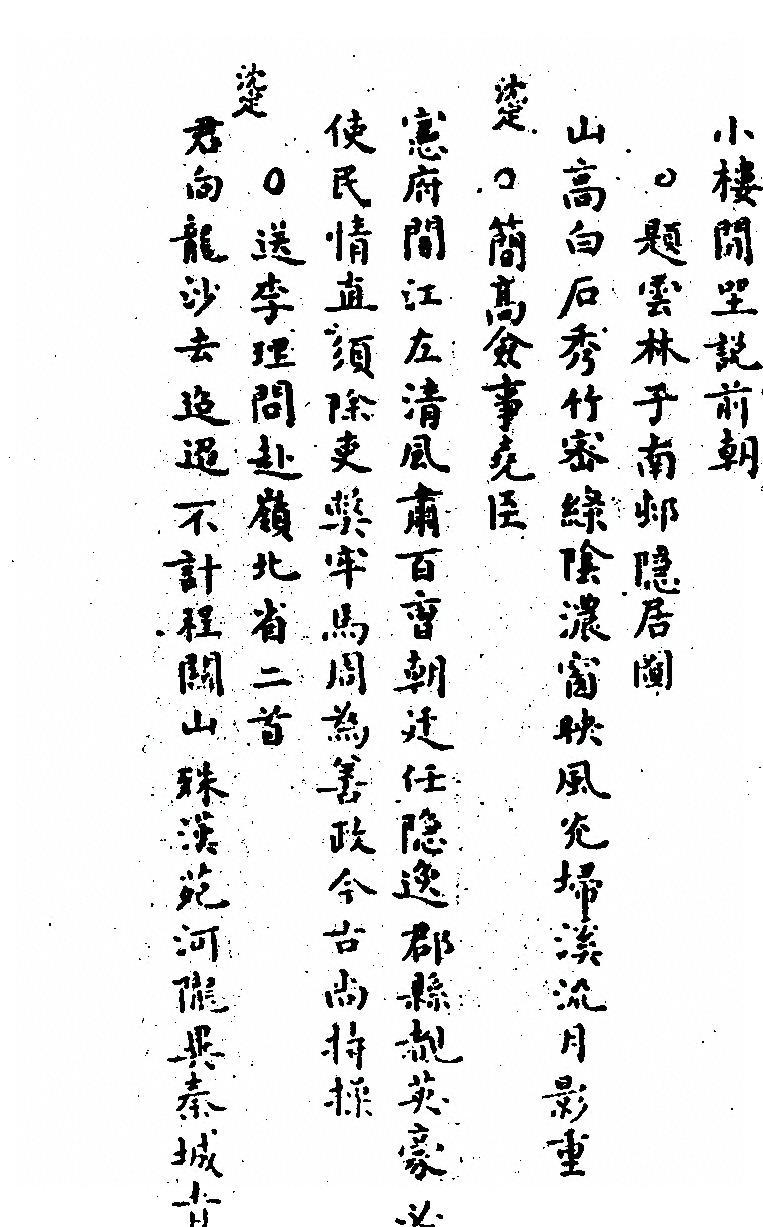 小樓閒坐説前朝
○題雲林子南邨隐居圖
山髙白石秀竹密緑陰濃窗映風光掃溪流月影重
沈定
○簡髙僉事堯臣
憲府開江左清風肅百曹朝廷任隐逸郡縣觀英豪必
使民情直須除吏獘牢馬周為善政今古尚持操
沈定
○送李理問赴嶺北省二首
君向龍沙去迢遥不計程關山殊漢苑河隴異秦城